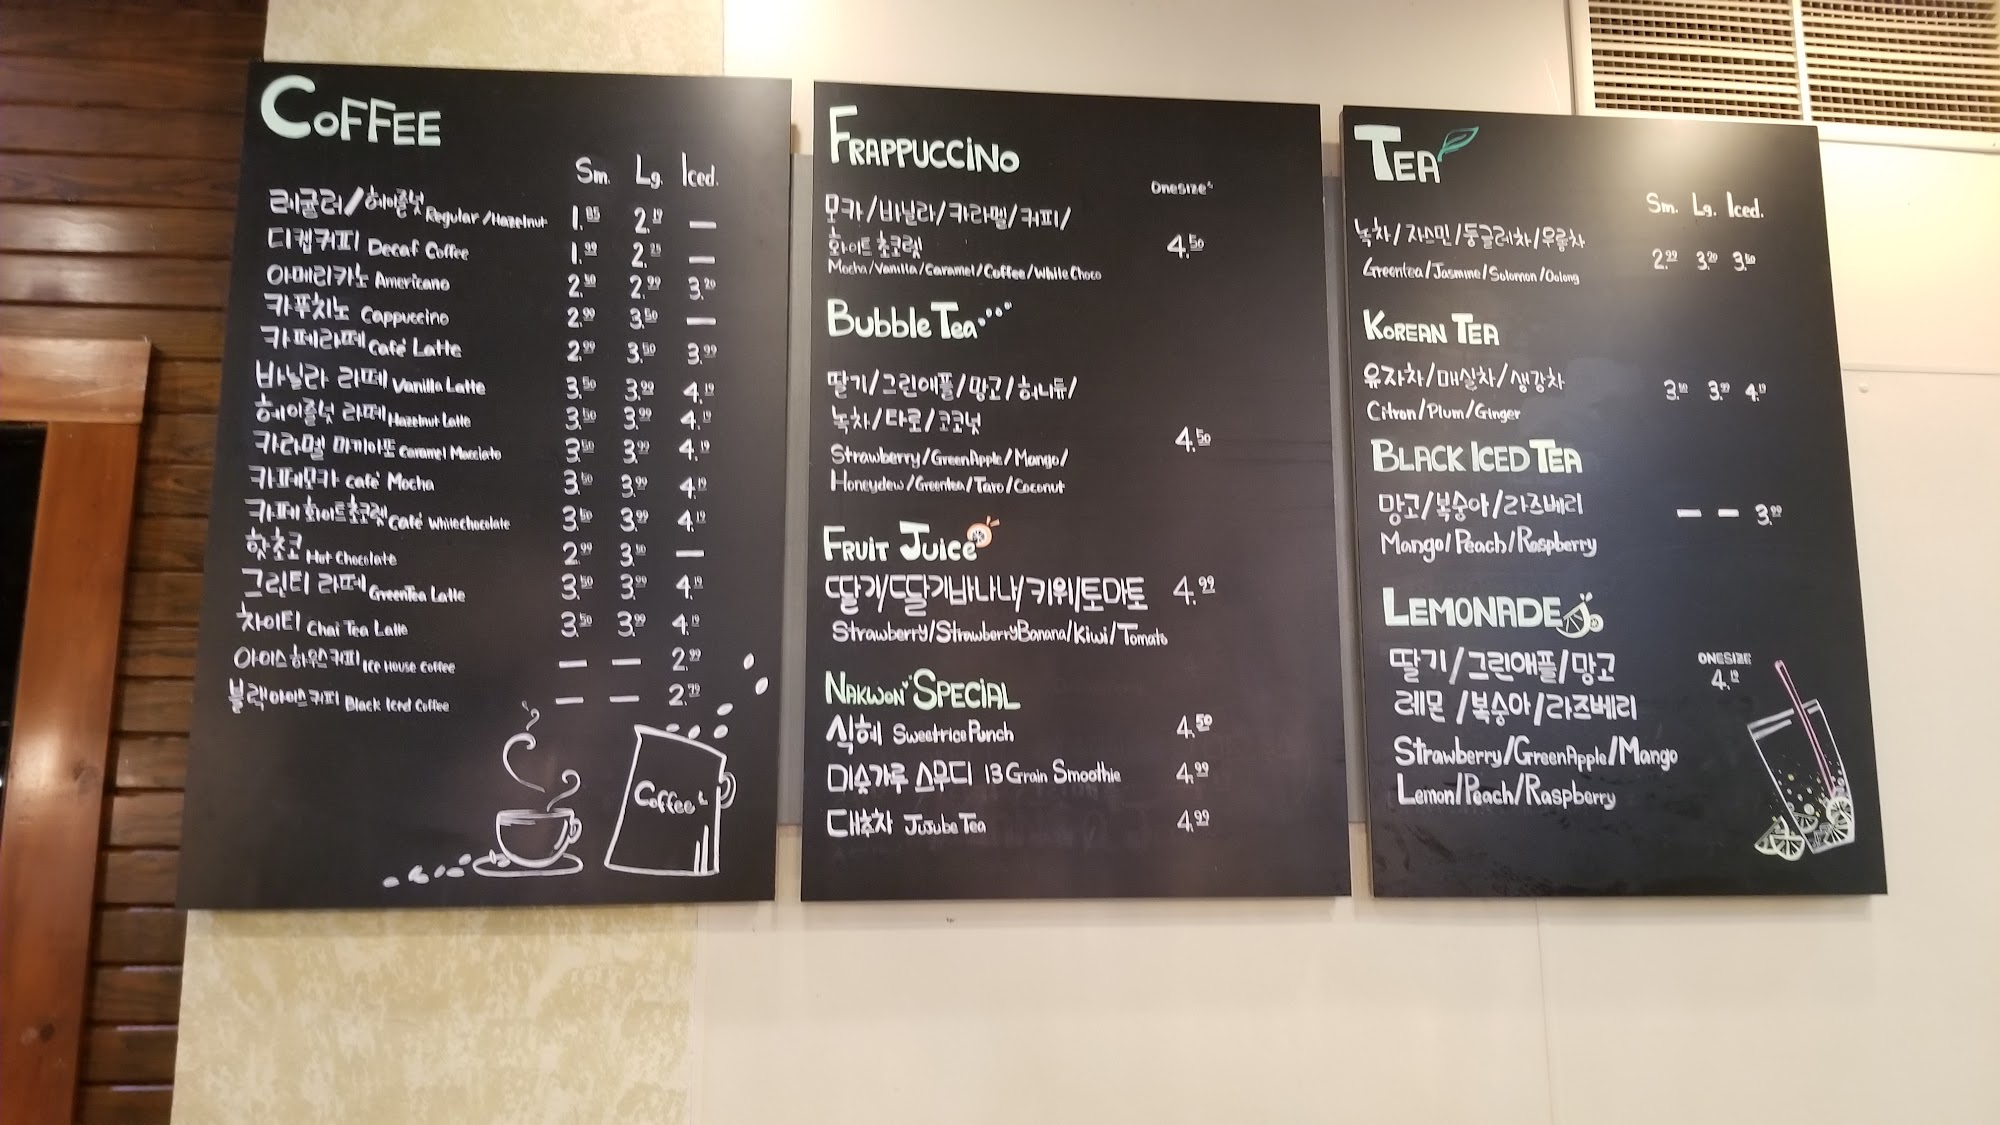 COFFEE
Sm. Lg. Iced.
레귤러/헤이즐넛 Regular/Hazelnut 1.85 2.19 —
디캡커피 Decaf Coffee 1.99 2.25 —
아메리카노 Americano 2.50 2.99 3.20
카푸치노 Cappuccino 2.99 3.50 —
카페라떼 Café Latte 2.99 3.50 3.99
바닐라 라떼 Vanilla Latte 3.50 3.99 4.19
헤이즐넛 라떼 Hazelnut Latte 3.50 3.99 4.19
카라멜 마끼아또 Caramel Macciato 3.50 3.99 4.19
카페모카 Café Mocha 3.50 3.99 4.19
카페 화이트초코렛 Café Whitechocolate 3.50 3.99 4.19
핫초코 Hot Chocolate 2.99 3.50 —
그린티 라떼 GreenTea Latte 3.50 3.99 4.19
차이티 Chai Tea Latte 3.50 3.99 4.19
아이스하우스커피 Ice House Coffee — — 2.99
블랙아이스커피 Black Iced Coffee — — 2.79
Coffee
FRAPPUCCINO
ONESIZE
모카/바닐라/카라멜/커피/
화이트 초코렛 4.50
Mocha/Vanilla/Caramel/Coffee/White Choco
Bubble Tea
딸기/그린애플/망고/허니듀/
녹차/타로/코코넛 4.50
Strawberry/GreenApple/Mango/
Honeydew/Greentea/Taro/Coconut
FRUIT JUICE
딸기/딸기바나나/키위/토마토 4.99
Strawberry/StrawberryBanana/Kiwi/Tomato
NAKWON SPECIAL
식혜 SweetricePunch 4.50
미숫가루 스무디 13 Grain Smoothie 4.99
대추차 JuJube Tea 4.99
TEA
Sm. Lg. Iced.
녹차/자스민/둥글레차/우롱차 2.99 3.20 3.50
Greentea/Jasmine/Solomon/Oolong
KOREAN TEA
유자차/매실차/생강차 3.50 3.99 4.19
Citron/Plum/Ginger
BLACK ICED TEA
망고/복숭아/라즈베리 — — 3.99
Mango/Peach/Raspberry
LEMONADE
딸기/그린애플/망고 ONESIZE
레몬/복숭아/라즈베리 4.19
Strawberry/GreenApple/Mango
Lemon/Peach/Raspberry